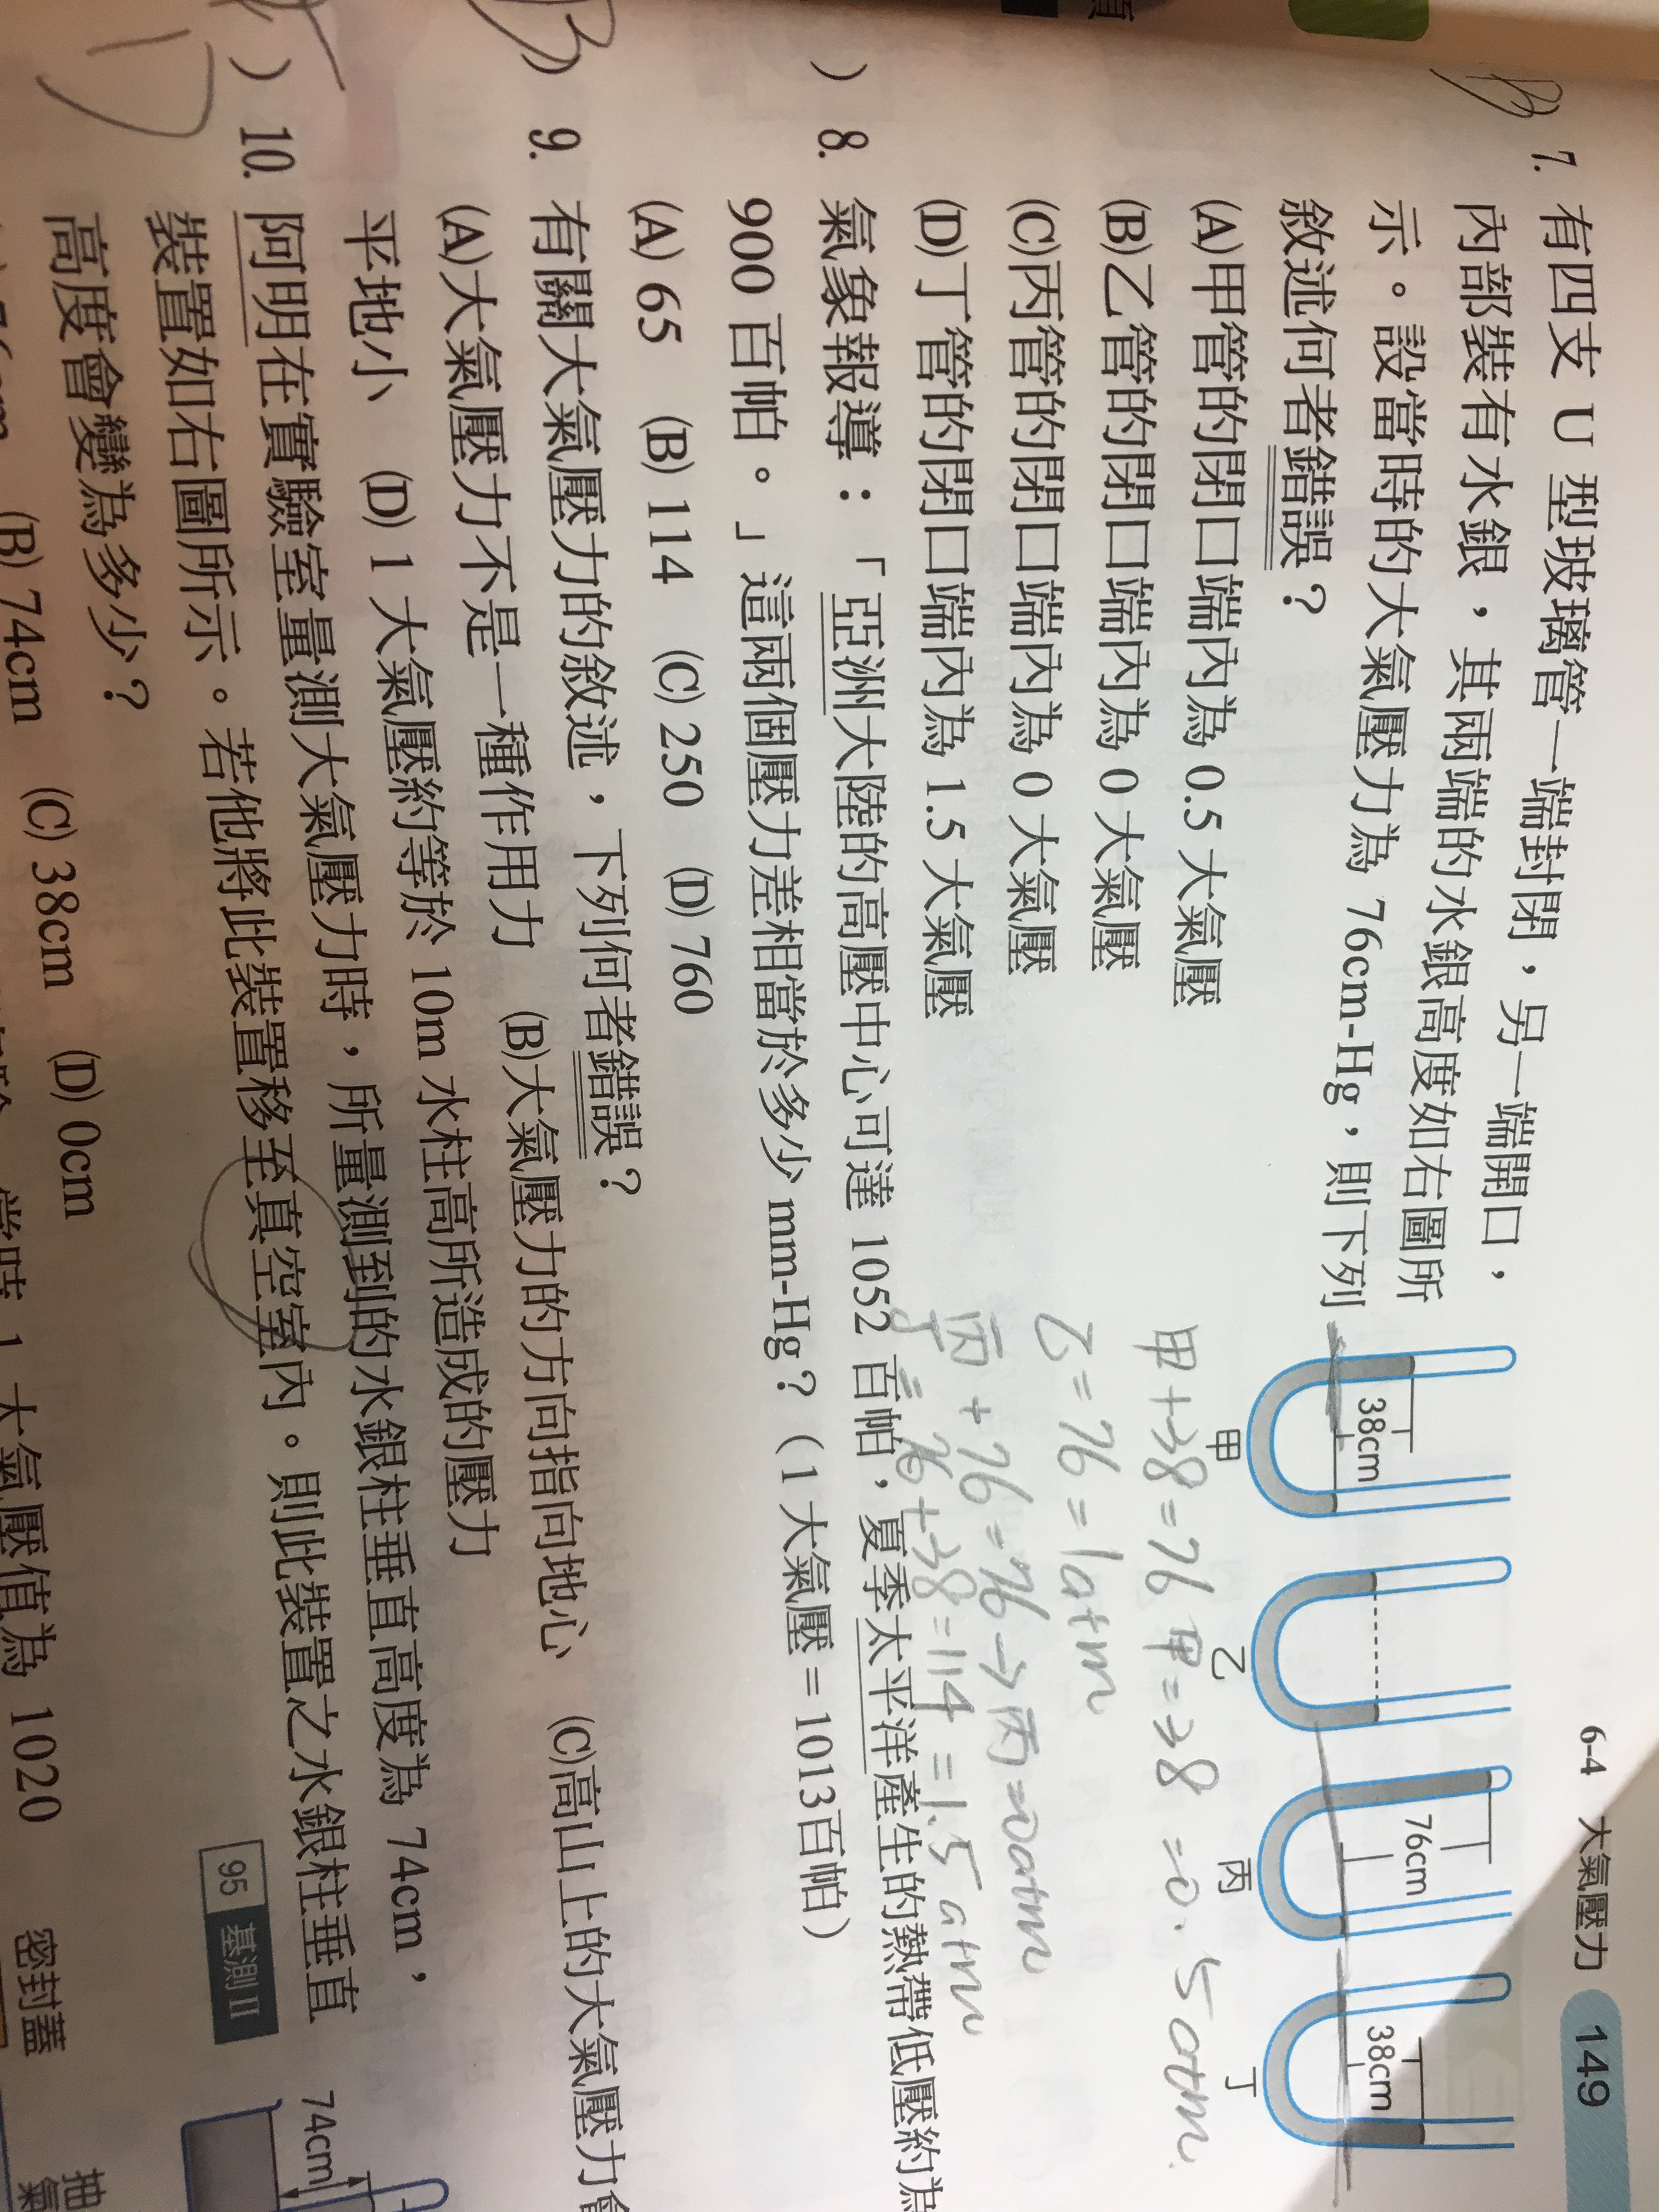 6-4 大氣壓力 149
7. 有四支 U 型玻璃管一端封閉，另一端開口，
內部裝有水銀，其兩端的水銀高度如右圖所
示。設當時的大氣壓力為 76cm-Hg，則下列
敘述何者錯誤？
(A)甲管的閉口端內為 0.5 大氣壓
(B)乙管的閉口端內為 0 大氣壓
(C)丙管的閉口端內為 0 大氣壓
(D)丁管的閉口端內為 1.5 大氣壓
38cm
76cm
38cm
甲 乙 丙 丁
甲+38=76 甲=38 =0.5atm.
乙=76=1atm
丙+76=76→丙=0atm
丁=76+38=114=1.5atm
B
) 8. 氣象報導：「亞洲大陸的高壓中心可達 1052 百帕，夏季太平洋產生的熱帶低壓約為
900 百帕。」這兩個壓力差相當於多少 mm-Hg？（1 大氣壓 = 1013百帕）
(A) 65 (B) 114 (C) 250 (D) 760
B) 9. 有關大氣壓力的敘述，下列何者錯誤？
(A)大氣壓力不是一種作用力 (B)大氣壓力的方向指向地心 (C)高山上的大氣壓力
平地小 (D) 1 大氣壓約等於 10m 水柱高所造成的壓力
) 10. 阿明在實驗室量測大氣壓力時，所量測到的水銀柱垂直高度為 74cm，
裝置如右圖所示。若他將此裝置移至真空室內。則此裝置之水銀柱垂直
高度會變為多少？
95 基測 II
74cm
D
(B) 74cm (C) 38cm (D) 0cm
當時 1 大氣壓值為 1020
密封蓋
抽氣